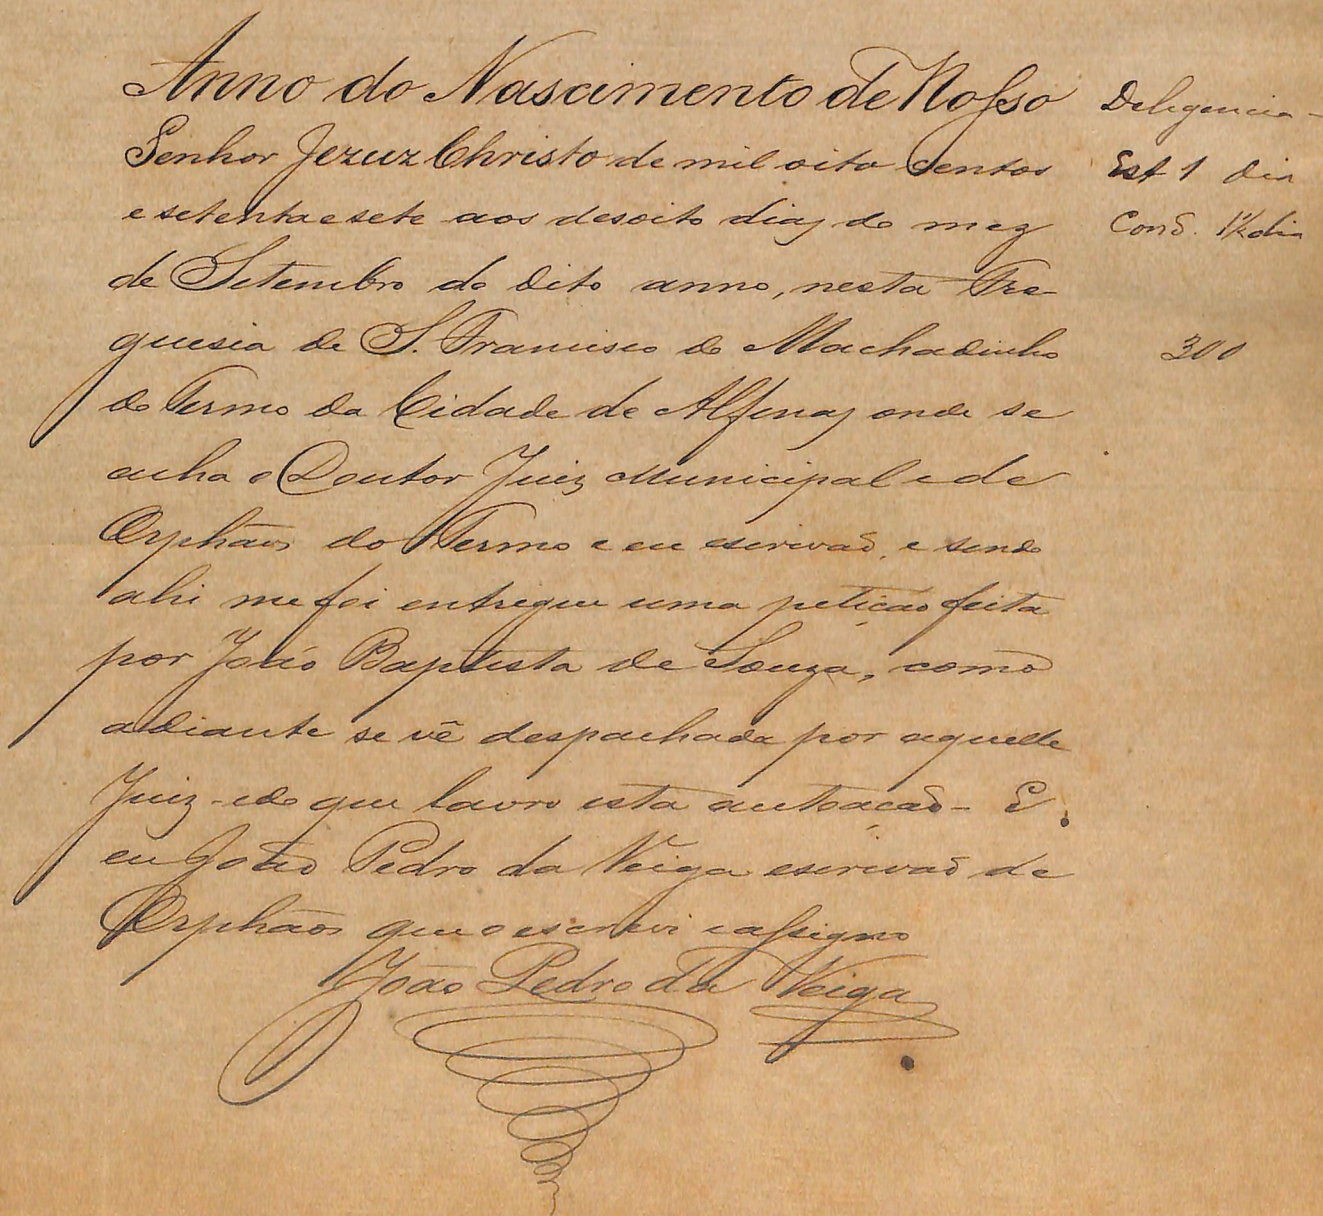 Anno do Nascimento de Nosso
Senhor Jezuz Christo de mil oito centos
e setenta e sete aos desoito dias do mez
de Setembro do dito anno, nesta Fre-
guesia de S. Francisco do Machadinho
do Termo da Cidade de Alfenas onde se
acha o Doutor Juiz Municipal e de
Orphãos do Termo e eu escrivaõ, e sendo
ahi me foi entregue uma petição feita
por João Baptista de Souza, como
adiante se vê despachada por aquelle
Juiz - e do que lavro esta autoacaõ - E.
eu João Pedro da Veiga escrivaõ de
Orphãos que o escrevi e assigno
João Pedro da Veiga
Deligencia -
Est 1 dia
Cond. 1½ dia
300